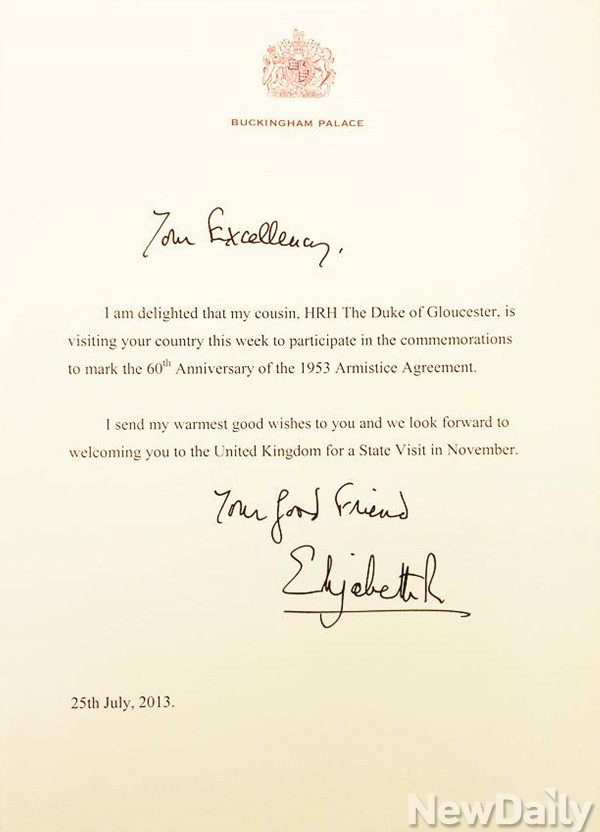 BUCKINGHAM PALACE
Your Excellency,
I am delighted that my cousin, HRH The Duke of Gloucester, is
visiting your country this week to participate in the commemorations
to mark the 60th Anniversary of the 1953 Armistice Agreement.
I send my warmest good wishes to you and we look forward to
welcoming you to the United Kingdom for a State Visit in November.
Your Good Friend
Elizabeth R
25th July, 2013.
NewDaily